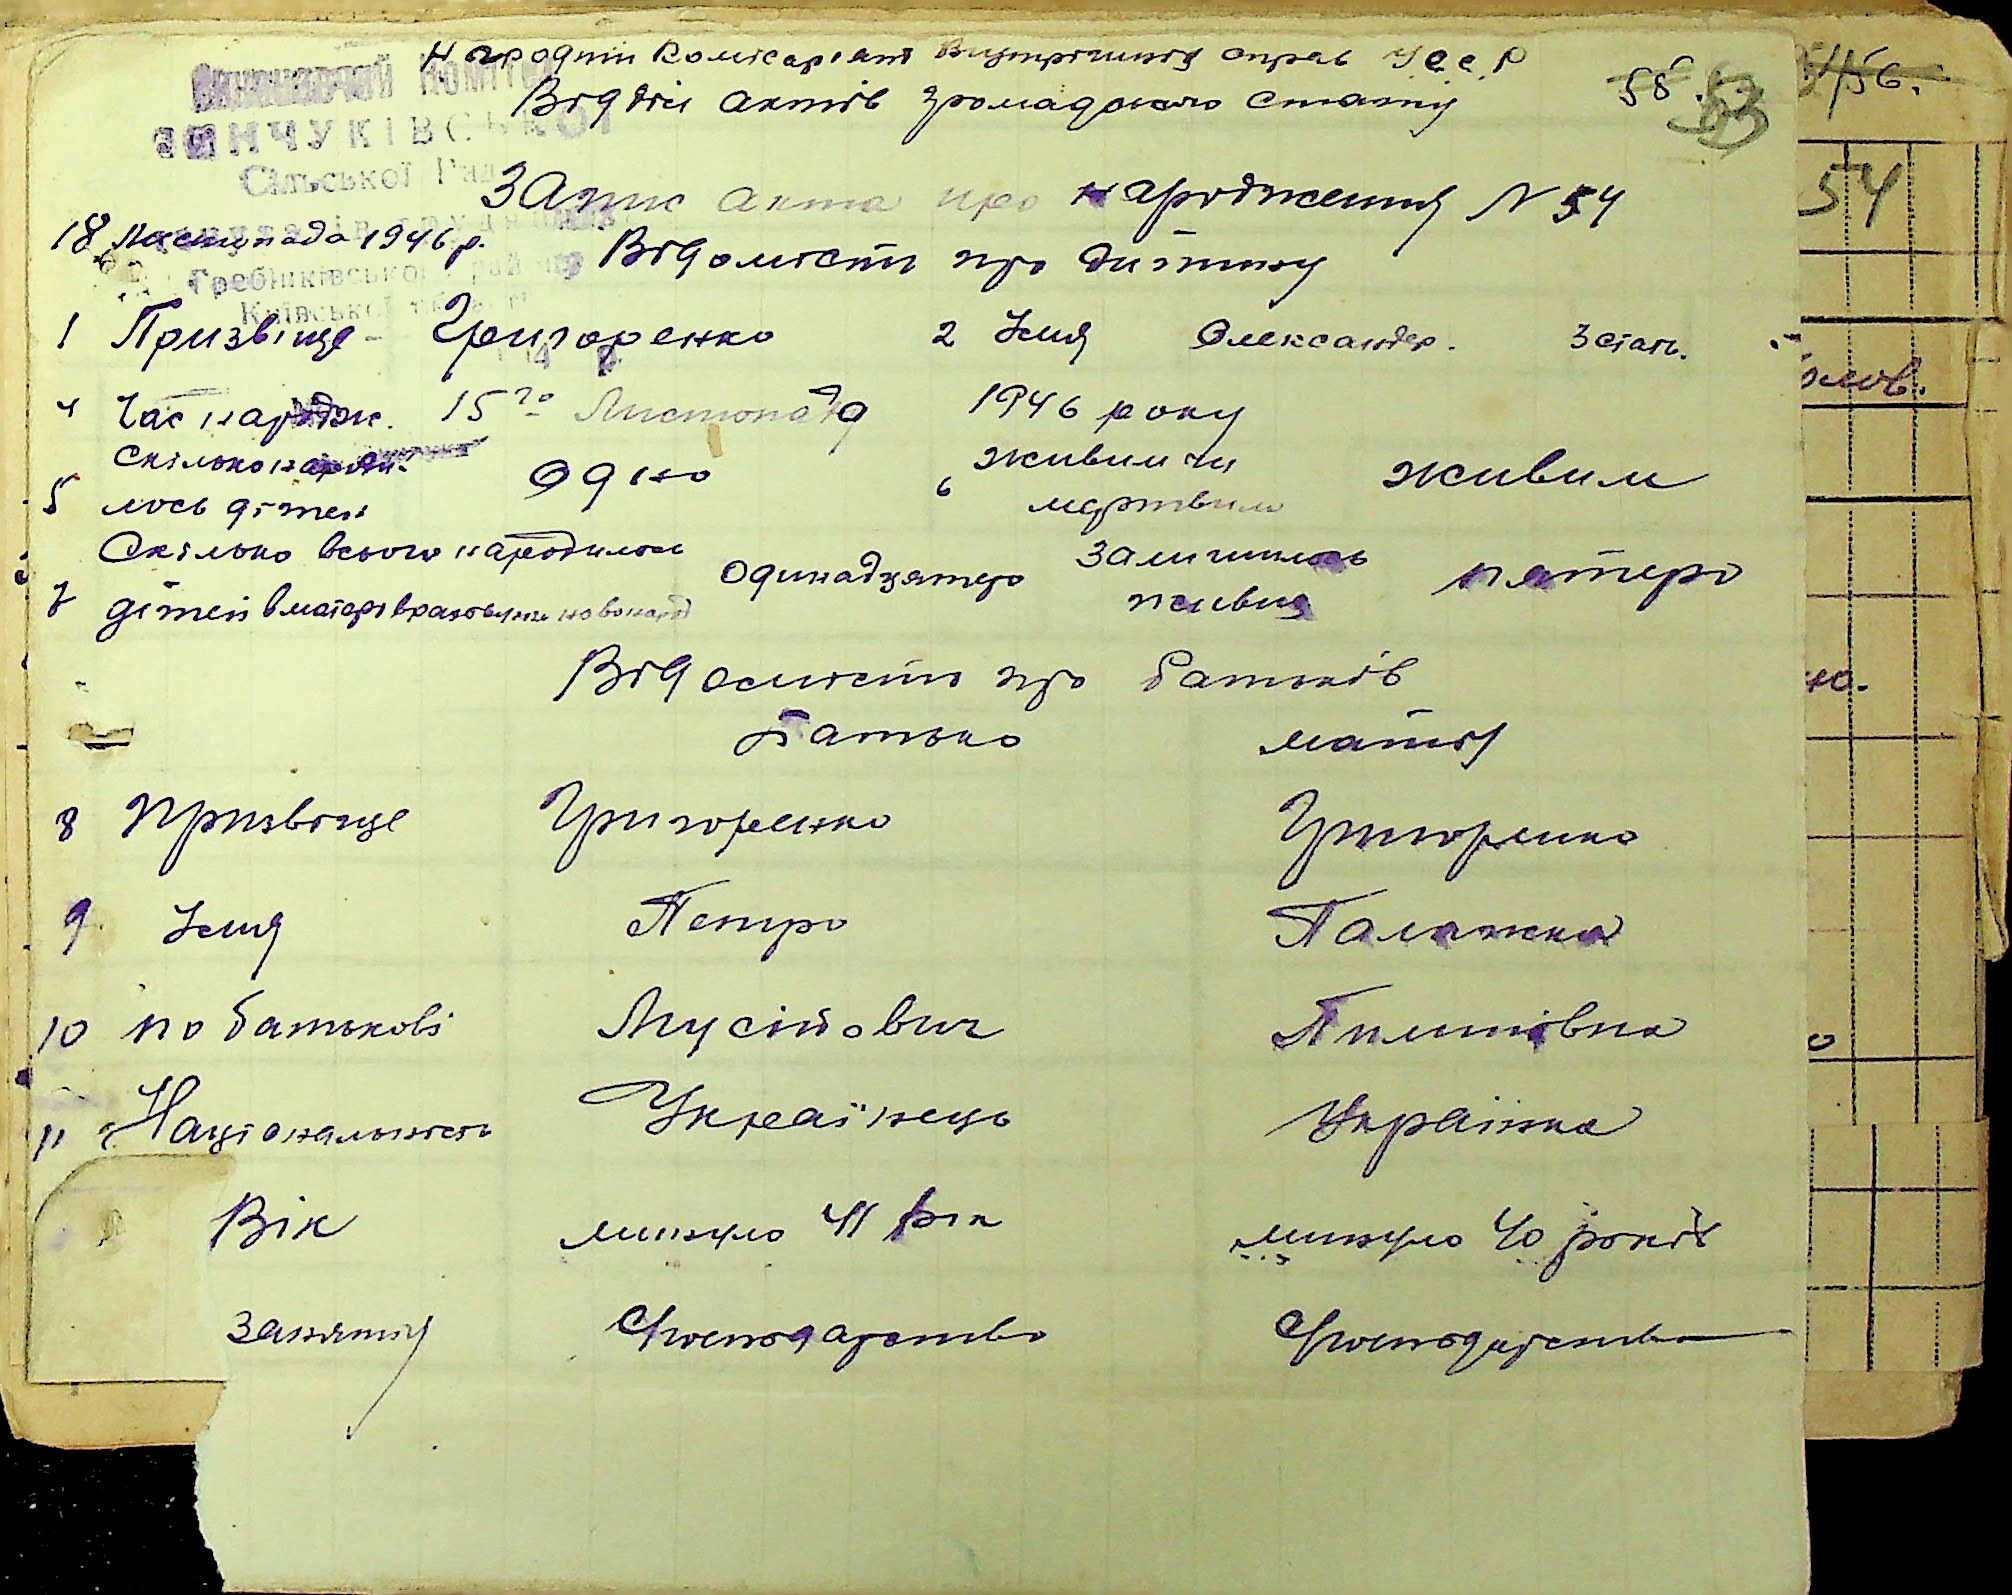 Народній Комісаріят Внутрішніх справ У.С.С.Р
Відділ актів громадського стану
58. 53
456.
Виконавчий Комітет
ЗІНЧУКІВСЬКОЇ
Сільської Ради
Гребінківського району
Київської
Запис акта про народження N 54
54
18 Листопада 1946 р.
Відомості про дитину
1 Призвіще - Григоренко 2 Імя Олександер. 3 стать.
4 Час народж. 15го Листопада 1946 року
5 Скілько народи-
лось дітей Одно 6 живим чи
мертвим живим
7 Скілько всього народилось
дітей в матері враховуючи новонарод Одинадцятеро Залишилось
живих пятеро
Відомості про батьків
Батько мати
8 Призвіще Григоренко Григоренко
9 Імя Петро Палажка
10 по батькові Мусійович Пилипівна
11 Національність Українець Українка
Вік минуло 41 рік минуло 40 років
Заняття Господарство Господарство